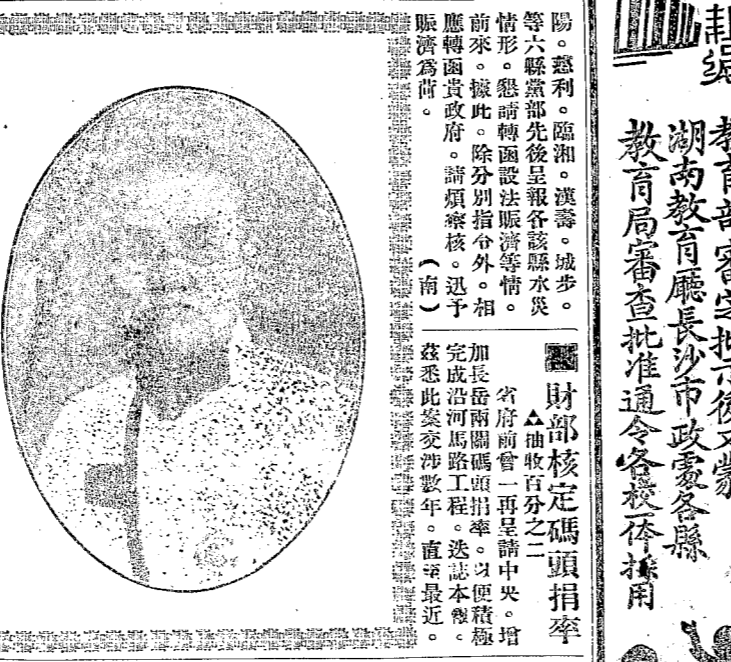 教育部審定批示後又蒙
湖南教育廳長沙市政處各縣
教育局審查批准通令各校一体採用
陽。慈利。臨湘。漢壽。城步。
等六縣黨部先後呈報各該縣水災
情形。懇請轉函設法賑濟等情。
前來。據此。除分別指令外。相
應轉函貴政府。請煩察核。迅予
賑濟爲荷。（南）
財部核定碼頭捐率
▲抽收百分之二
省府前曾一再呈請中央。增
加長岳兩關碼頭捐率。以便積極
完成沿河馬路工程。迭誌本報。
茲悉此案交涉數年。直至最近。